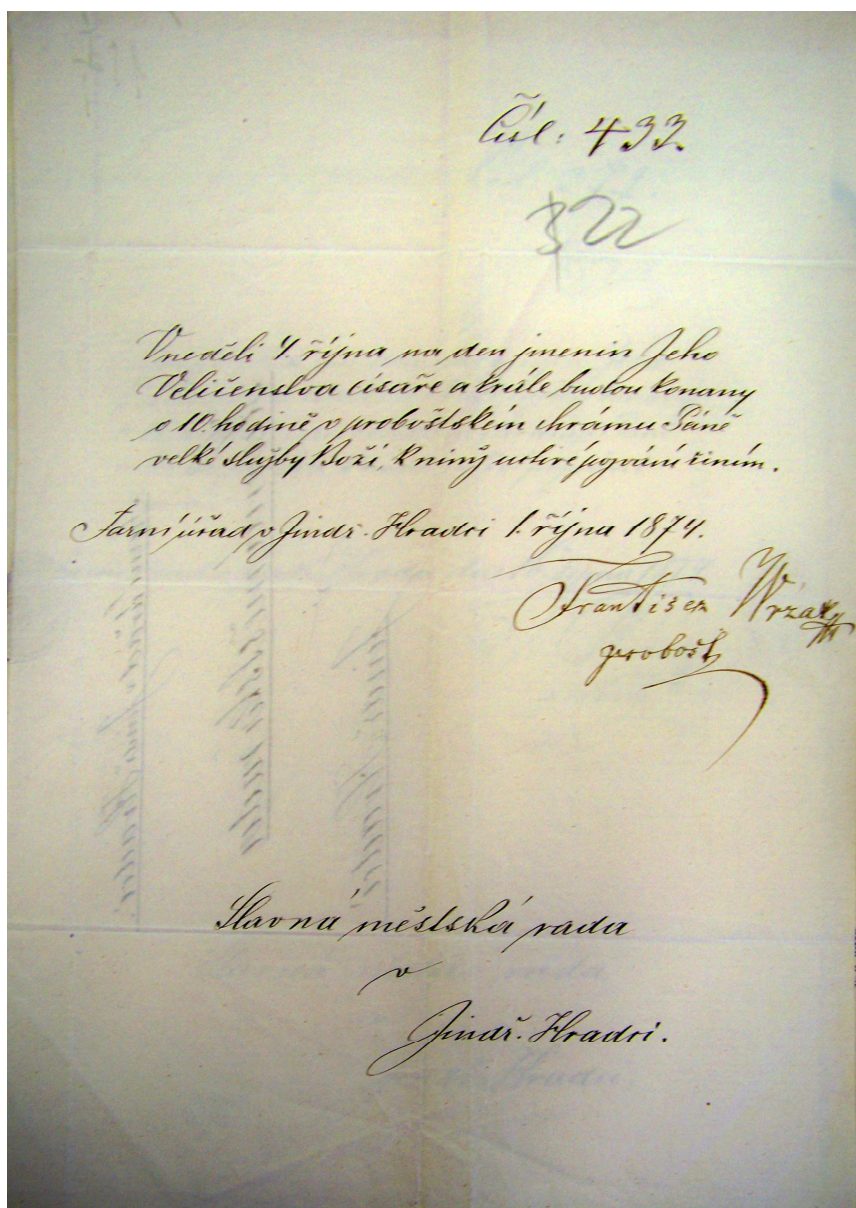 Čísl: 433.
322
V neděli 4. října na den jmenin Jeho
Veličenstva císaře a krále budou konany
o 10. hodině v probóštském chrámu Páně
velké služby Boží, k nimž uctivé pozvání činím.
Farní úřad v Jindř. Hradci 1. října 1874.
Frantisek Wrzak
probošt
Slavná městská rada
v
Jindř. Hradci.